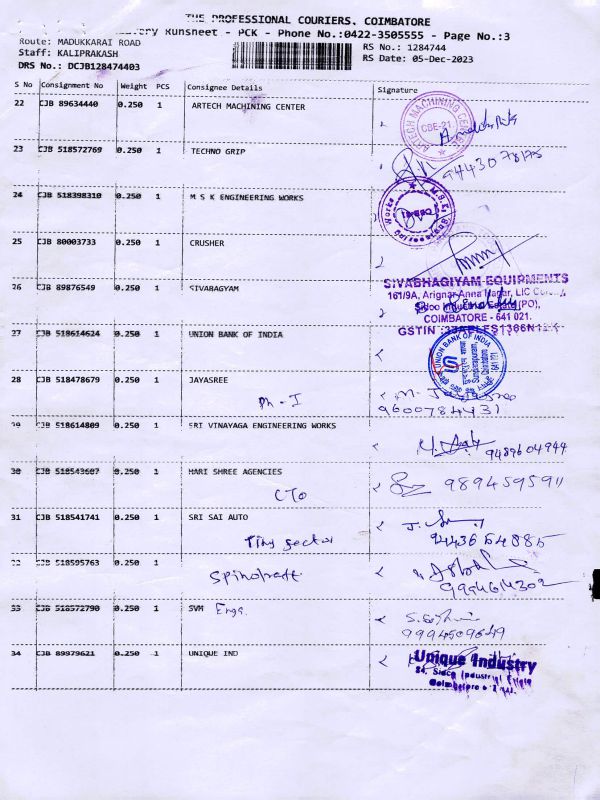 THE PROFESSIONAL COURIERS. COIMBATORE
Runsheet - PCK - Phone No.:0422-3505555 - Page No.:3
Route: MADUKKARAI ROAD
RS No.: 1284744
Staff: KALIPRAKASH
RS Date: 05-Dec-2023
DRS No.: DCJB128474403
S No Consignment No Weight PCS Consignee Details Signature
22 CJB 89634440 0.250 1 ARTECH MACHINING CENTER
ARTECH MACHINING CBE-21
23 CJB 518572769 0.250 1 TECHNO GRIP
24 CJB 518398310 0.250 1 M S K ENGINEERING WORKS
25 CJB 80003733 0.250 1 CRUSHER
26 CJB 89876549 0.250 1 SIVABAGYAM
SIVABHAGIYAM EQUIPMENTS
161/9A, Arignar Anna Nagar, LIC Colony,
Sidco Industrial Estate (PO),
COIMBATORE - 641 021.
27 CJB 518614624 0.250 1 UNION BANK OF INDIA
UNION BANK OF INDIA
28 CJB 518478679 0.250 1 JAYASREE
Ph - I
9600784431
29 CJB 518614809 0.250 1 SRI VINAYAGA ENGINEERING WORKS
9489604944
30 CJB 518543607 0.250 1 HARI SHREE AGENCIES
CTO
9894595911
31 CJB 518541741 0.250 1 SRI SAI AUTO
Tiny sector
9443654885
32 CJB 518595763 0.250 1
9994614302
33 CJB 518572790 0.250 1 SVM Engg.
9994509649
34 CJB 89979621 0.250 1 UNIQUE IND
Unique Industry
24, Sidco Industrial Estate